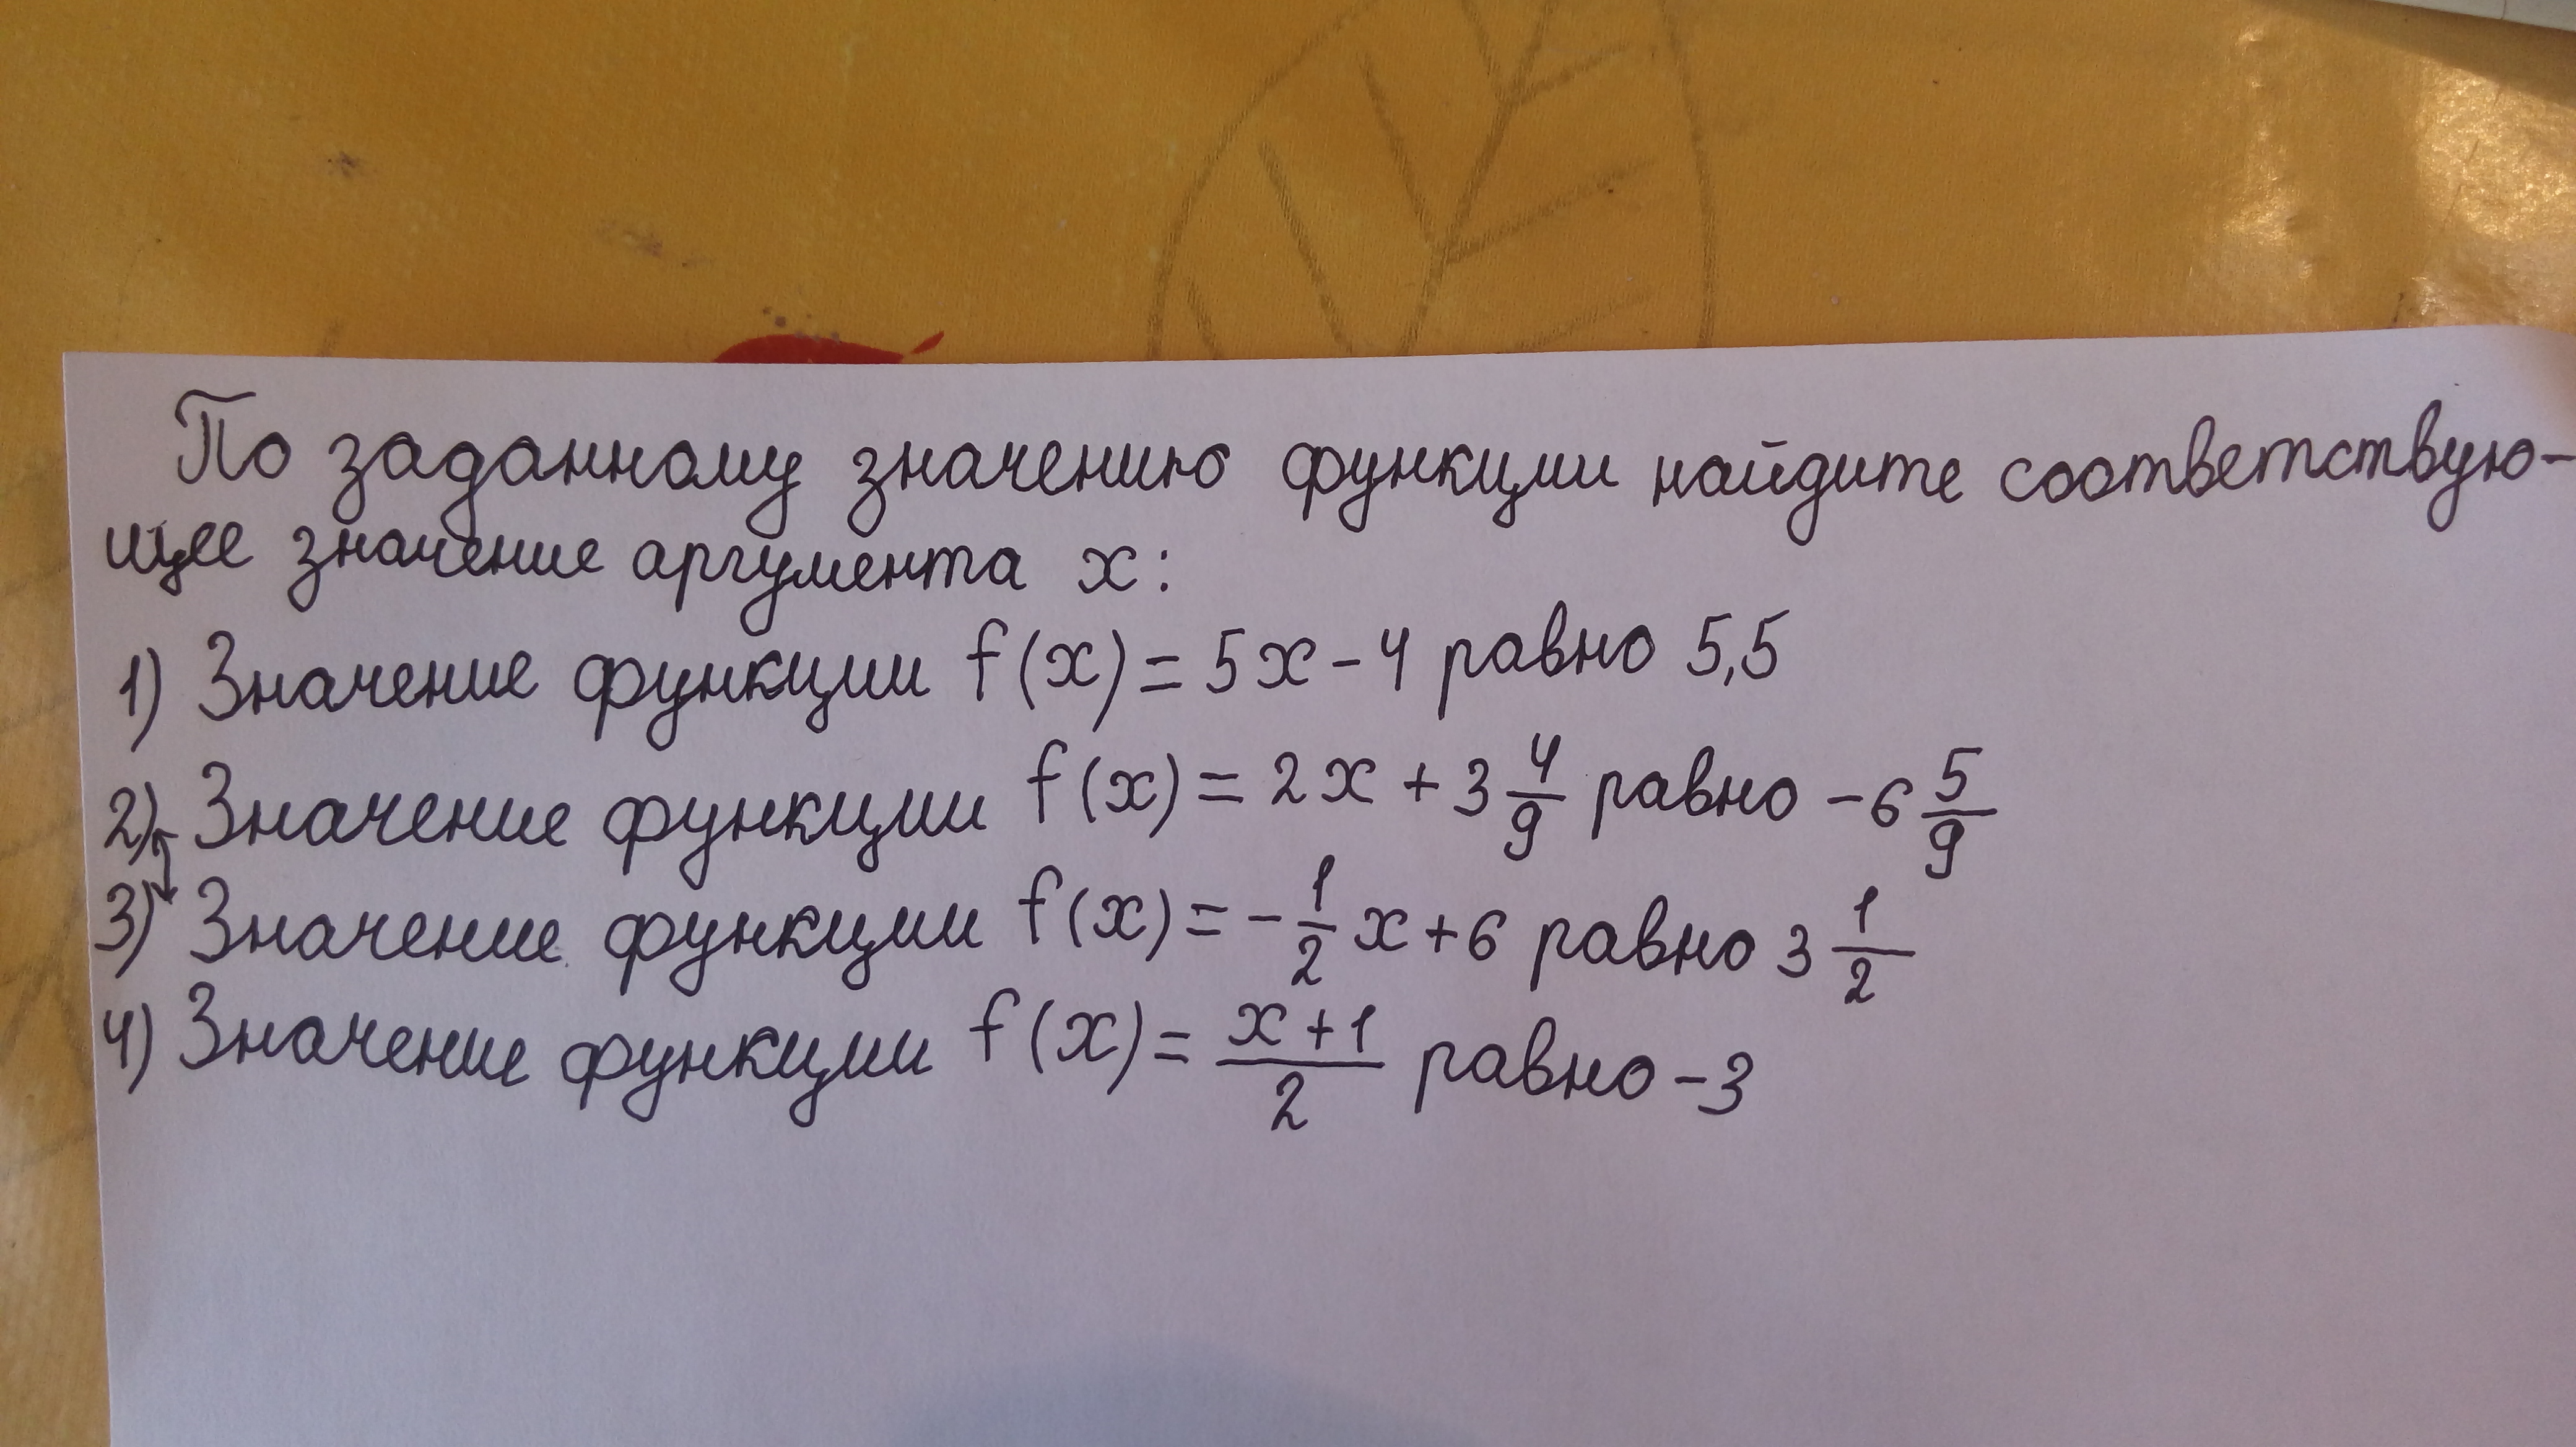 По заданному значению функции найдите соответствую-
щее значение аргумента x:
1) Значение функции f(x) = 5x - 4 равно 5,5
2) Значение функции f(x) = 2x + 3 4/9 равно -6 5/9
3) Значение функции f(x) = - 1/2 x + 6 равно 3 1/2
4) Значение функции f(x) = (x + 1)/2 равно -3